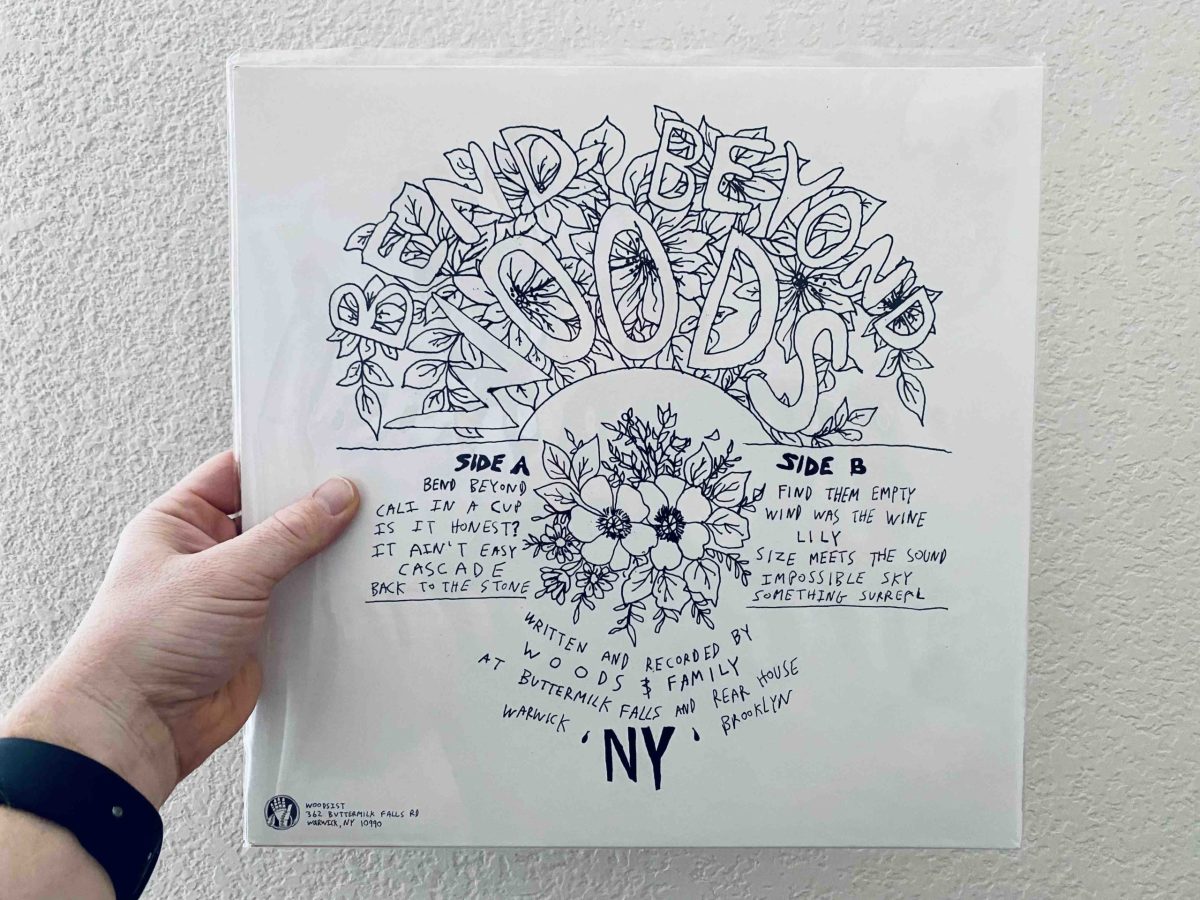 BEND BEYOND
WOODS
SIDE A
BEND BEYOND
CALI IN A CUP
IS IT HONEST?
IT AIN'T EASY
CASCADE
BACK TO THE STONE
SIDE B
FIND THEM EMPTY
WIND WAS THE WINE
LILY
SIZE MEETS THE SOUND
IMPOSSIBLE SKY
SOMETHING SURREAL
WRITTEN AND RECORDED BY
WOODS & FAMILY
AT BUTTERMILK FALLS AND REAR HOUSE
WARWICK, BROOKLYN
'NY'
WOODSIST
362 BUTTERMILK FALLS RD
WARWICK, NY 10990